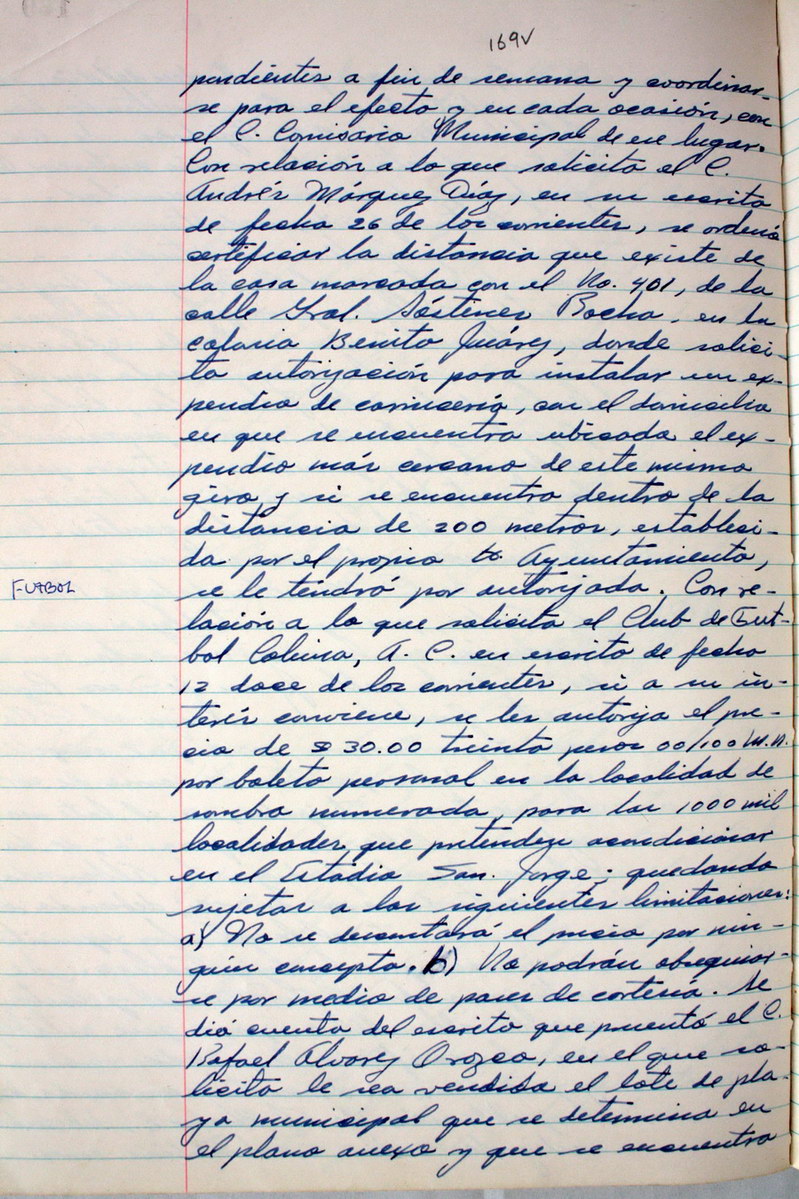 169v
pendientes a fin de semana y coordinar-
se para el efecto y en cada ocasión, con
el C. Comisario Municipal de ese lugar.
Con relación a lo que solicita el C.
Andrés Márquez Díaz, en su escrito
de fecha 26 de los corrientes, se ordenó
certificar la distancia que existe de
la casa marcada con el No. 401, de la
calle Gral. Sóstenes Rocha, en la
colonia Benito Juárez, donde solici-
ta autorización para instalar un ex-
pendio de carnicería, con el domicilio
en que se encuentra ubicada el ex-
pendio más cercano de este mismo
giro y si se encuentra dentro de la
distancia de 200 metros, estableci-
da por el propio Ayuntamiento,
FUTBOL
se le tendrá por autorizada. Con re-
lación a lo que solicita el Club de Fut-
bol Colima, A. C. en escrito de fecha
12 doce de los corrientes, si a su in-
terés conviene, se les autoriza el pre-
cio de $ 30.00 treinta pesos 00/100 M.N.
por boleto personal en la localidad de
sombra numerada, para las 1000 mil
localidades que pretenden acondicionar
en el Estadio San Jorge; quedando
sujetas a las siguientes limitaciones:
a) No se descontará el precio por nin-
gún concepto. b) No podrán obsequiar-
se por medio de pases de cortesía. Se
dió cuenta del escrito que presentó el C.
Rafael Alvarez Orozco, en el que so-
licita le sea vendida el lote de pla-
ya municipal que se determina en
el plano anexo y que se encuentra